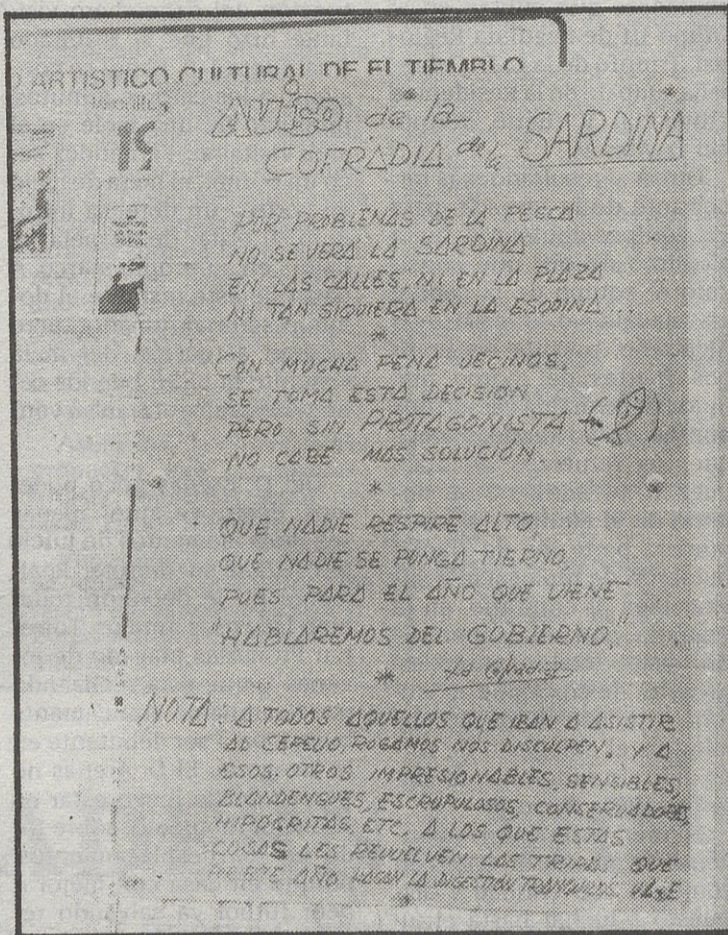 O ARTISTICO CULTURAL DE EL TIEMBLO
AVISO de la
COFRADIA de la SARDINA
POR PROBLEMAS DE LA PESCA
NO SE VERA LA SARDINA
EN LAS CALLES, NI EN LA PLAZA
NI TAN SIQUIERA EN LA ESQUINA...
*
CON MUCHA PENA VECINOS,
SE TOMA ESTA DECISION
PERO SIN PROTAGONISTA → ( )
NO CABE MAS SOLUCIÓN.
*
QUE NADIE RESPIRE ALTO,
QUE NADIE SE PONGA TIERNO,
PUES PARA EL AÑO QUE VIENE
"HABLAREMOS DEL GOBIERNO."
* La Cofradía
NOTA: A TODOS AQUELLOS QUE IBAN A ASISTIR
AL SEPELIO, ROGAMOS NOS DISCULPEN. Y A
ESOS OTROS IMPRESIONABLES, SENSIBLES,
BLANDENGUES, ESCRUPULOSOS, CONSERVADORES,
HIPOCRITAS, ETC. A LOS QUE ESTAS
COSAS LES REVUELVEN LAS TRIPAS QUE
ESTE AÑO HAGAN LA DIGESTIÓN TRANQUILOS. VALE